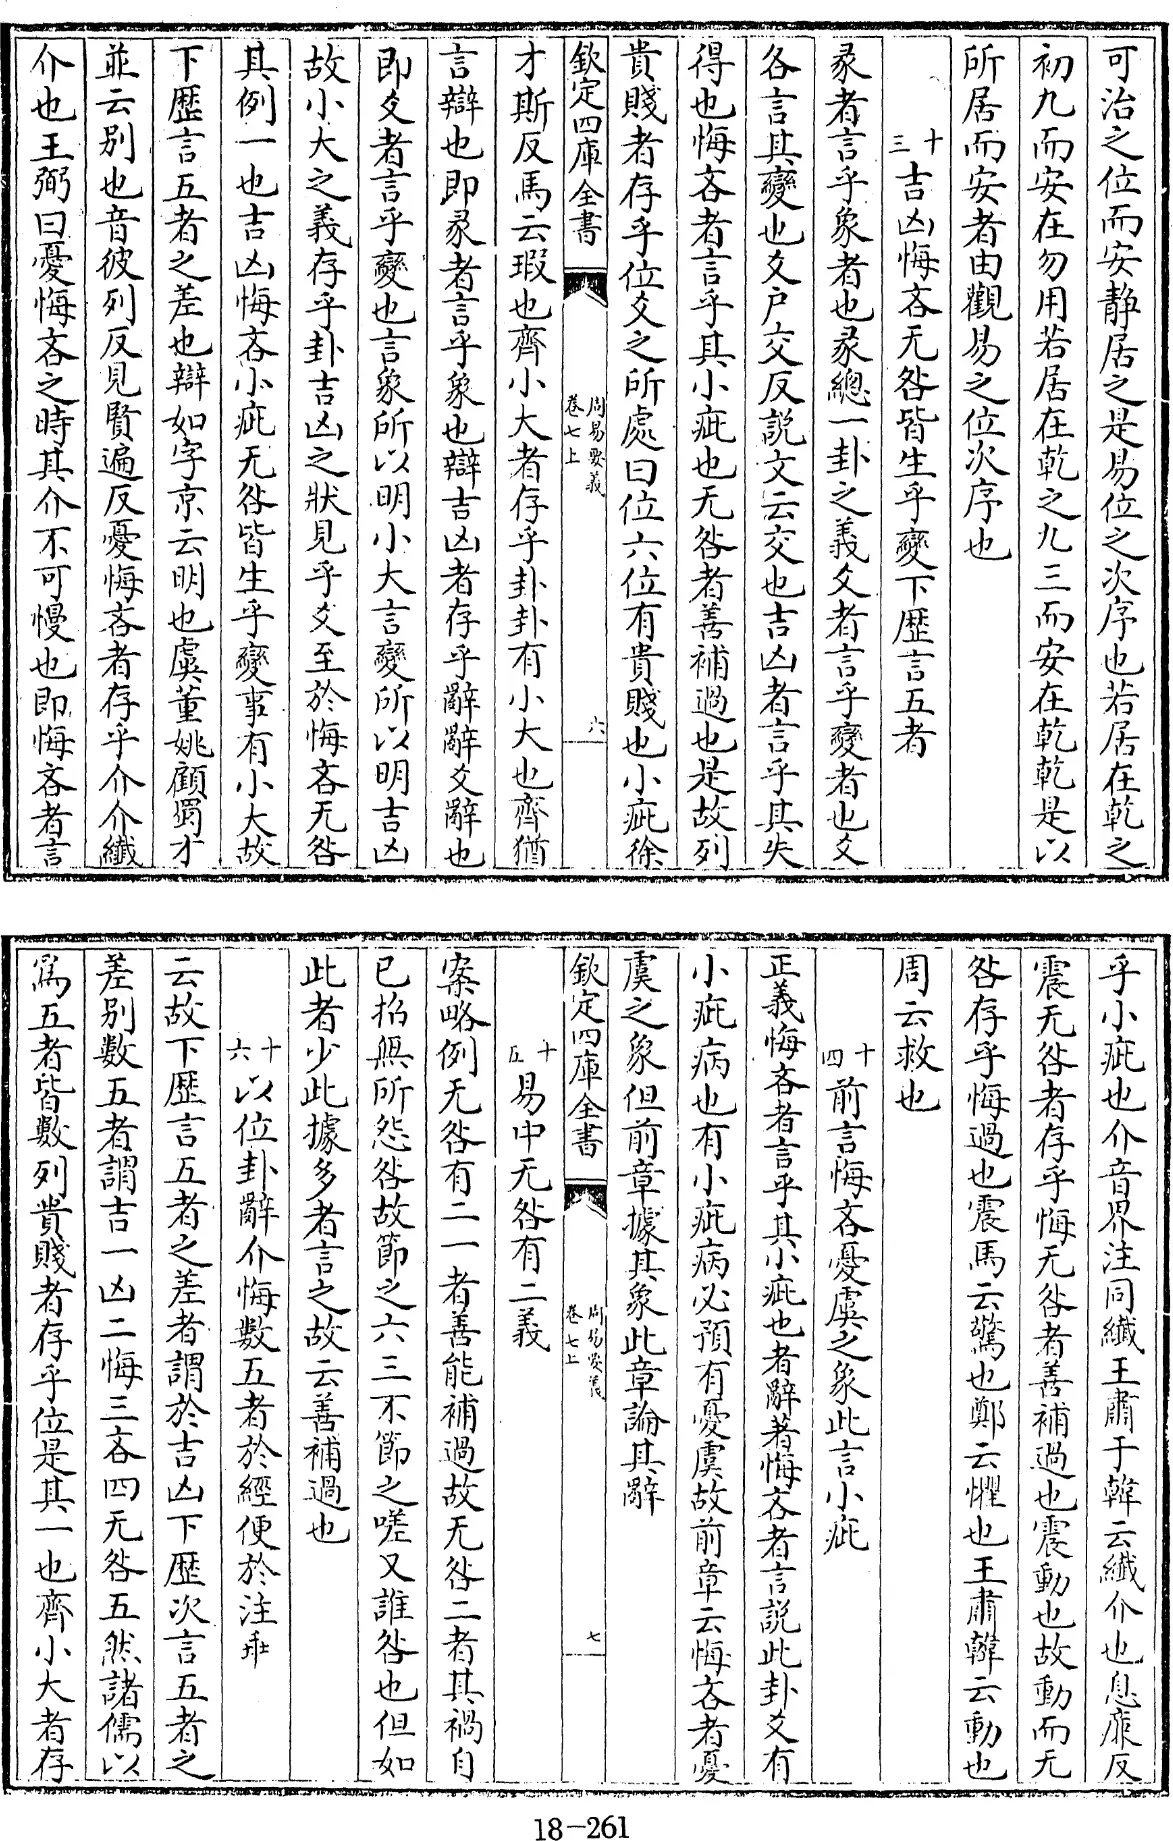 可治之位而安靜居之是易位之次序也若居在乾之
初九而安在勿用若居在乾之九三而安在乾乾是以
所居而安者由觀易之位次序也
十三吉凶悔吝无咎皆生乎變下歷言五者
彖者言乎象者也彖總一卦之義爻者言乎變者也爻
各言其變也爻户交反説文云交也吉凶者言乎其失
得也悔吝者言乎其小疵也无咎者善補過也是故列
貴賤者存乎位爻之所處曰位六位有貴賤也小疵徐
欽定四庫全書
周易要義
卷七上
六
才斯反馬云瑕也齊小大者存乎卦卦有小大也齊猶
言辯也即彖者言乎象也辯吉凶者存乎辭辭爻辭也
即爻者言乎變也言象所以明小大言變所以明吉凶
故小大之義存乎卦吉凶之狀見乎爻至於悔吝无咎
其例一也吉凶悔吝小疵无咎皆生乎變事有小大故
下歷言五者之差也辯如字京云明也虞董姚顧蜀才
並云别也音彼列反見賢遍反憂悔吝者存乎介介纖
介也王弼曰憂悔吝之時其介不可慢也即悔吝者言
乎小疵也介音界注同纖王肅于韓云纖介也息㢘反
震无咎者存乎悔无咎者善補過也震動也故動而无
咎存乎悔過也震馬云驚也鄭云懼也王肅韓云動也
周云救也
十四前言悔吝憂虞之象此言小疵
正義悔吝者言乎其小疵也者辭著悔吝者言説此卦爻有
小疵病也有小疵病必預有憂虞故前章云悔吝者憂
虞之象但前章據其象此章論其辭
欽定四庫全書
周易要義
卷七上
七
十五易中无咎有二義
案略例无咎有二一者善能補過故无咎二者其禍自
已招無所怨咎故節之六三不節之嗟又誰咎也但如
此者少此據多者言之故云善補過也
十六以位卦辭介悔數五者於經便於注乖
云故下歷言五者之差者謂於吉凶下歷次言五者之
差别數五者謂吉一凶二悔三吝四无咎五然諸儒以
為五者皆數列貴賤者存乎位是其一也齊小大者存
18-261